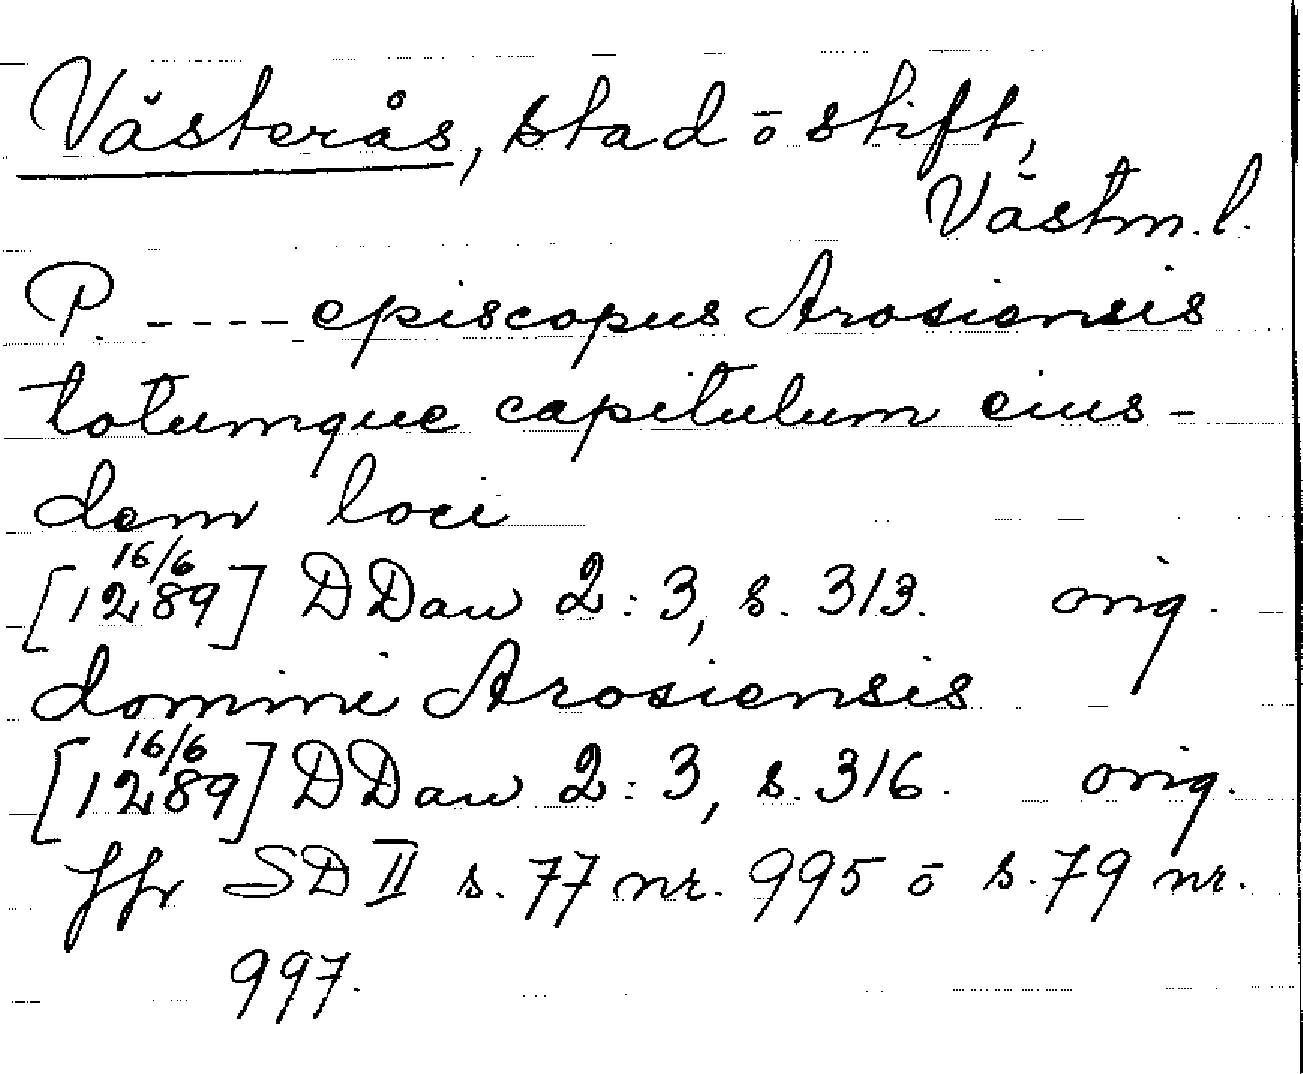 Västerås, stad ō stift,
Västm. l.
P. ---- episcopus Arosiensis
totumque capitulum eius-
dem loci
16/6
[1289] DDan 2:3, s. 313. orig.
domini Arosiensis
16/6
[1289] DDan 2:3, s. 316. orig.
Jfr SD II s. 77 nr. 995 ō s. 79 nr.
997.